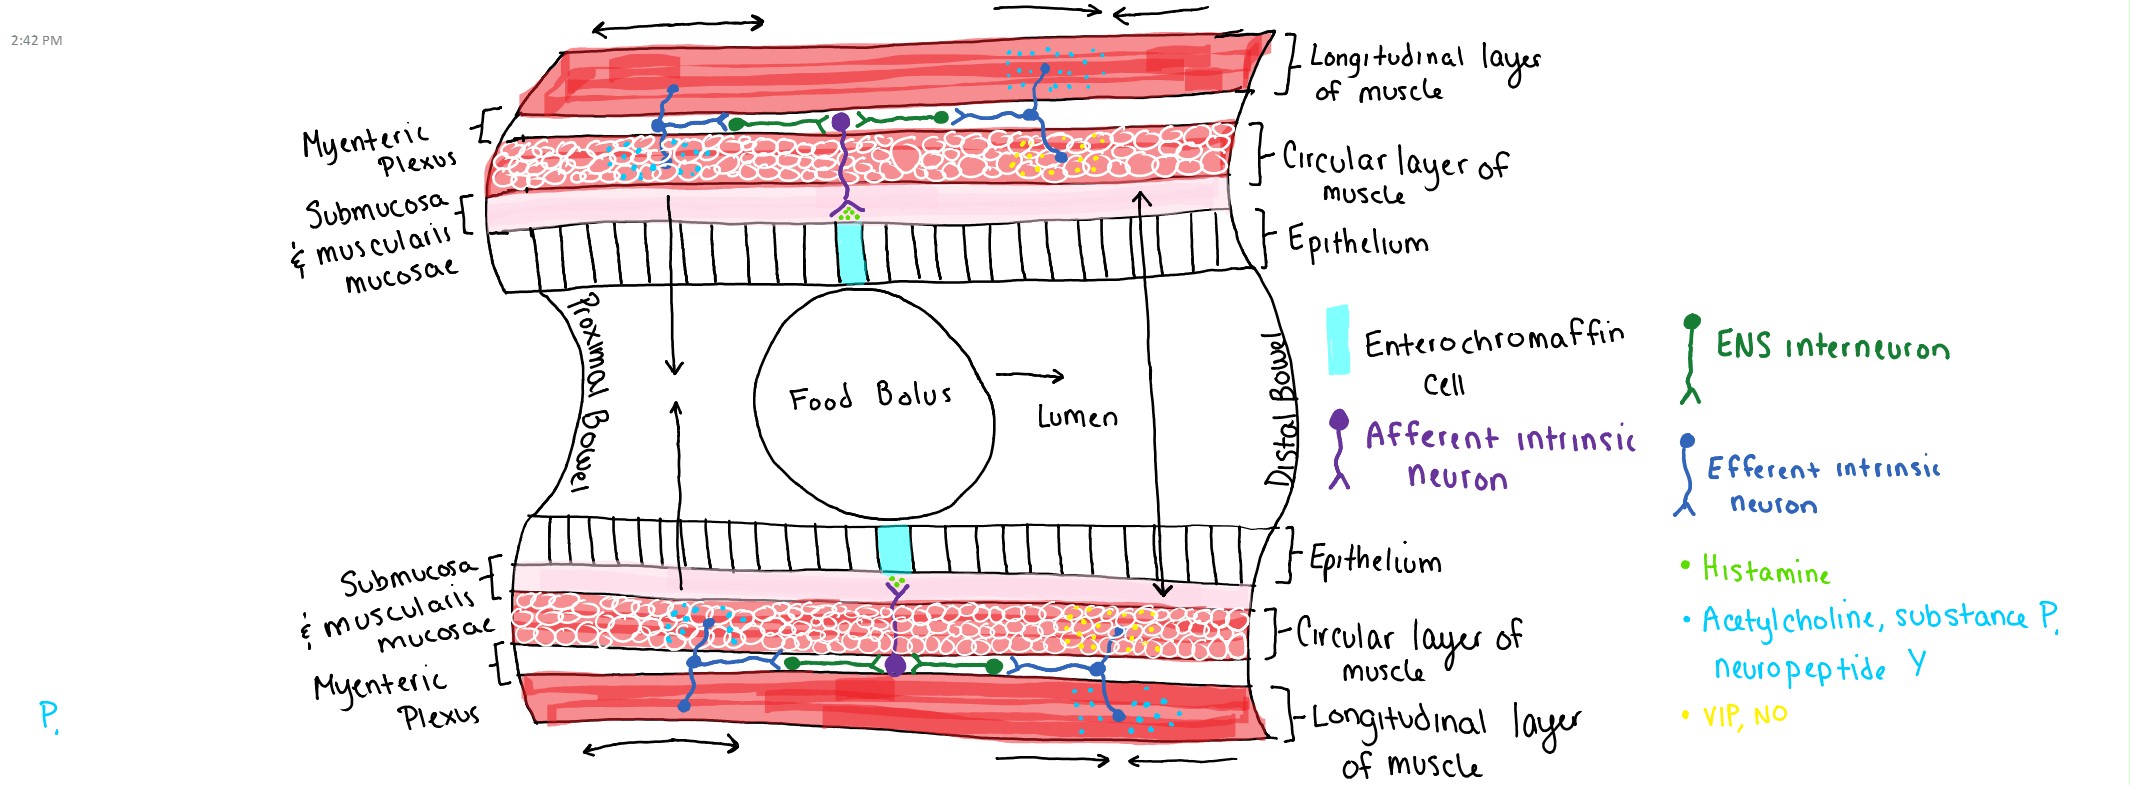 2:42 PM
Longitudinal layer
of muscle
Myenteric
Plexus
Circular layer of
muscle
Submucosa
& muscularis
mucosae
Epithelium
Proximal Bowel
Food Bolus
Lumen
Distal Bowel
Enterochromaffin
cell
ENS interneuron
Afferent intrinsic
neuron
Efferent intrinsic
neuron
Submucosa
& muscularis
mucosae
Epithelium
• Histamine
Circular layer of
muscle
• Acetylcholine, substance P,
neuropeptide Y
Myenteric
Plexus
Longitudinal layer
of muscle
• VIP, NO
P,